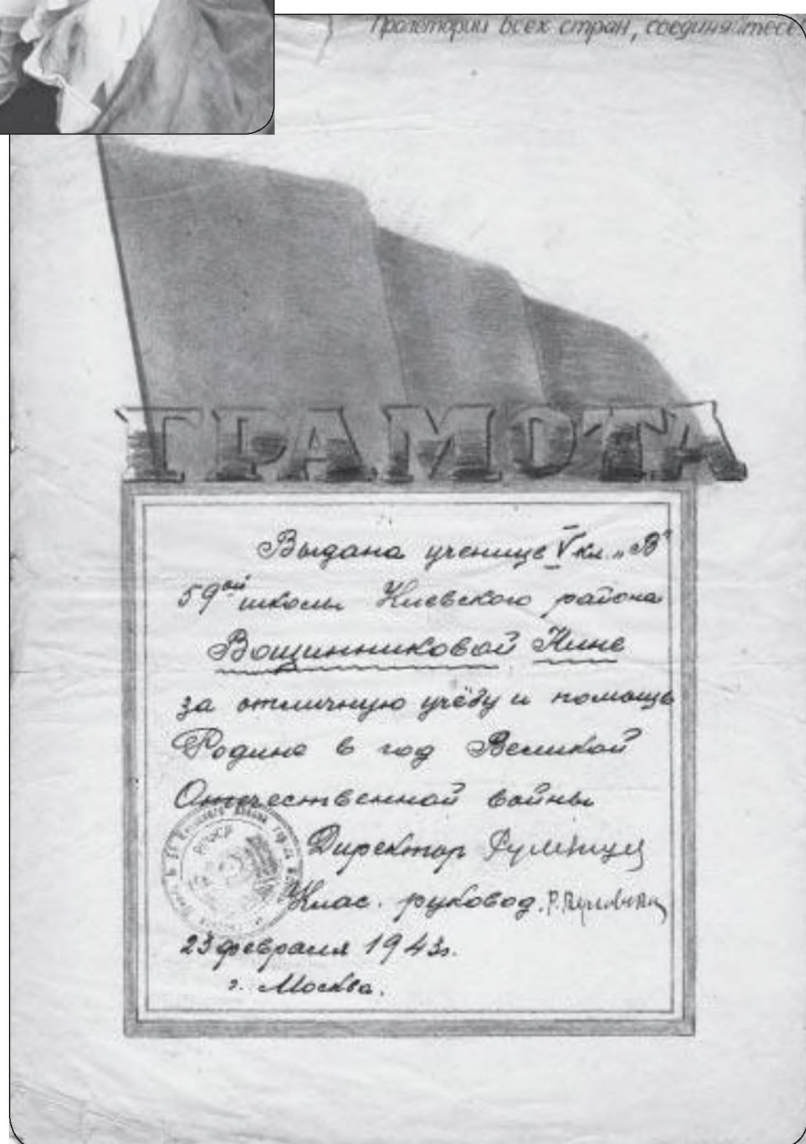 Пролетарии всех стран, соединяйтесь
ГРАМОТА
Выдана ученице V кл. „В"
59ой школы Киевского района
Вощинниковой Нине
за отличную учёбу и помощь
Родине в год Великой
Отечественной войны
Директор
Клас. руковод.
23 февраля 1943г.
г. Москва.